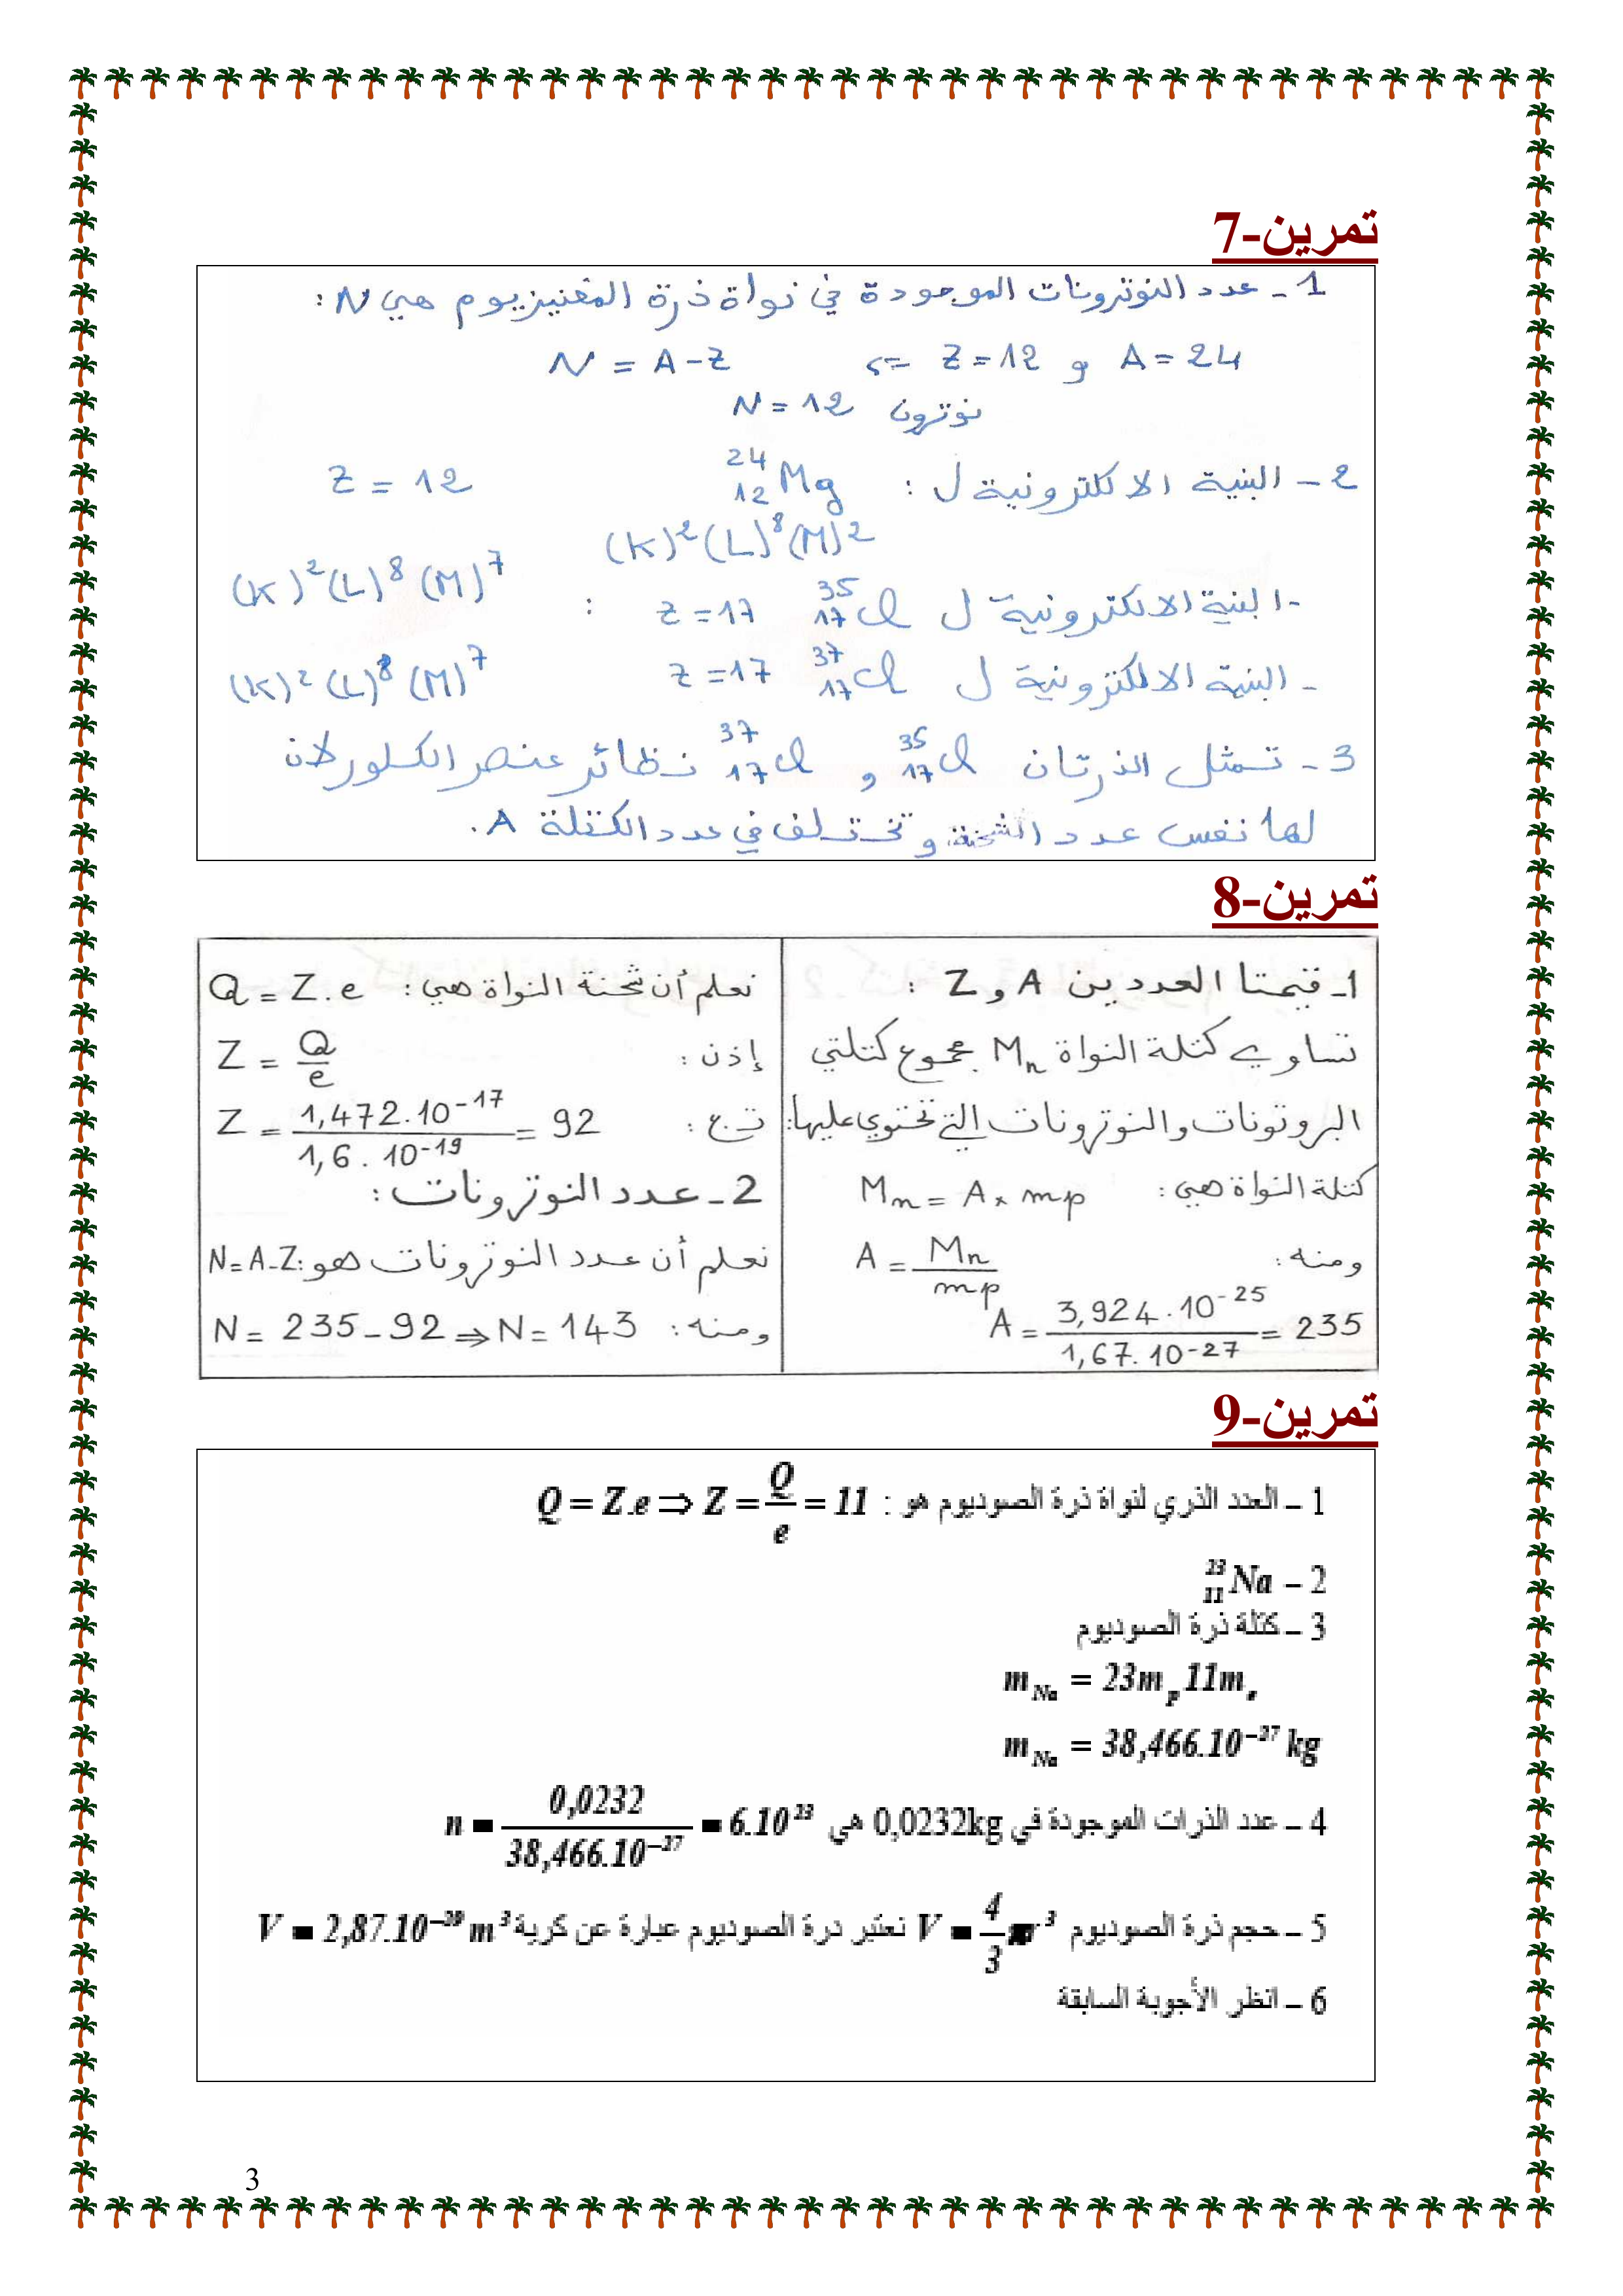 تمرين-7
1 - عدد النوترونات الموجودة في نواة ذرة المغنيزيوم هي N :
A = 24 و Z = 12 => N = A - Z
N = 12 نوترون
2 - البنية الالكترونية ل : ²⁴₁₂Mg Z = 12
(K)²(L)⁸(M)²
- البنية الالكترونية ل ³⁵₁₇Cl Z = 17 : (K)²(L)⁸(M)⁷
- البنية الالكترونية ل ³⁷₁₇Cl Z = 17 (K)²(L)⁸(M)⁷
3 - تمثل الذرتان ³⁵₁₇Cl و ³⁷₁₇Cl نظائر عنصر الكلور لان
لها نفس عدد الشحنة و تختلف في عدد الكتلة A .
تمرين-8
1 - قيمتا العددين A و Z :
تساوي كتلة النواة Mn مجموع كتلتي
البروتونات والنوترونات التي تحتوي عليها:
كتلة النواة هي : Mn = A × mp
ومنه : A = Mn / mp
A = 3,924.10⁻²⁵ / 1,67.10⁻²⁷ = 235
نعلم أن شحنة النواة هي : Q = Z.e
إذن : Z = Q / e
ت.ع : Z = 1,472.10⁻¹⁷ / 1,6.10⁻¹⁹ = 92
2 - عدد النوترونات :
نعلم أن عدد النوترونات هو : N = A - Z
ومنه : N = 235 - 92 ⇒ N = 143
تمرين-9
1 – العدد الذري لنواة ذرة الصوديوم هو : Q = Z.e ⇒ Z = Q / e = 11
2 – ²³₁₁Na
3 – كتلة ذرة الصوديوم
m_Na = 23m_p 11m_e
m_Na = 38,466.10⁻²⁷ kg
4 – عدد الذرات الموجودة في 0,0232kg هي n = 0,0232 / 38,466.10⁻²⁷ = 6.10²³
5 – حجم ذرة الصوديوم V = 4/3 πr³ نعتبر ذرة الصوديوم عبارة عن كرية V = 2,87.10⁻²⁹ m³
6 – انظر الأجوبة السابقة
3